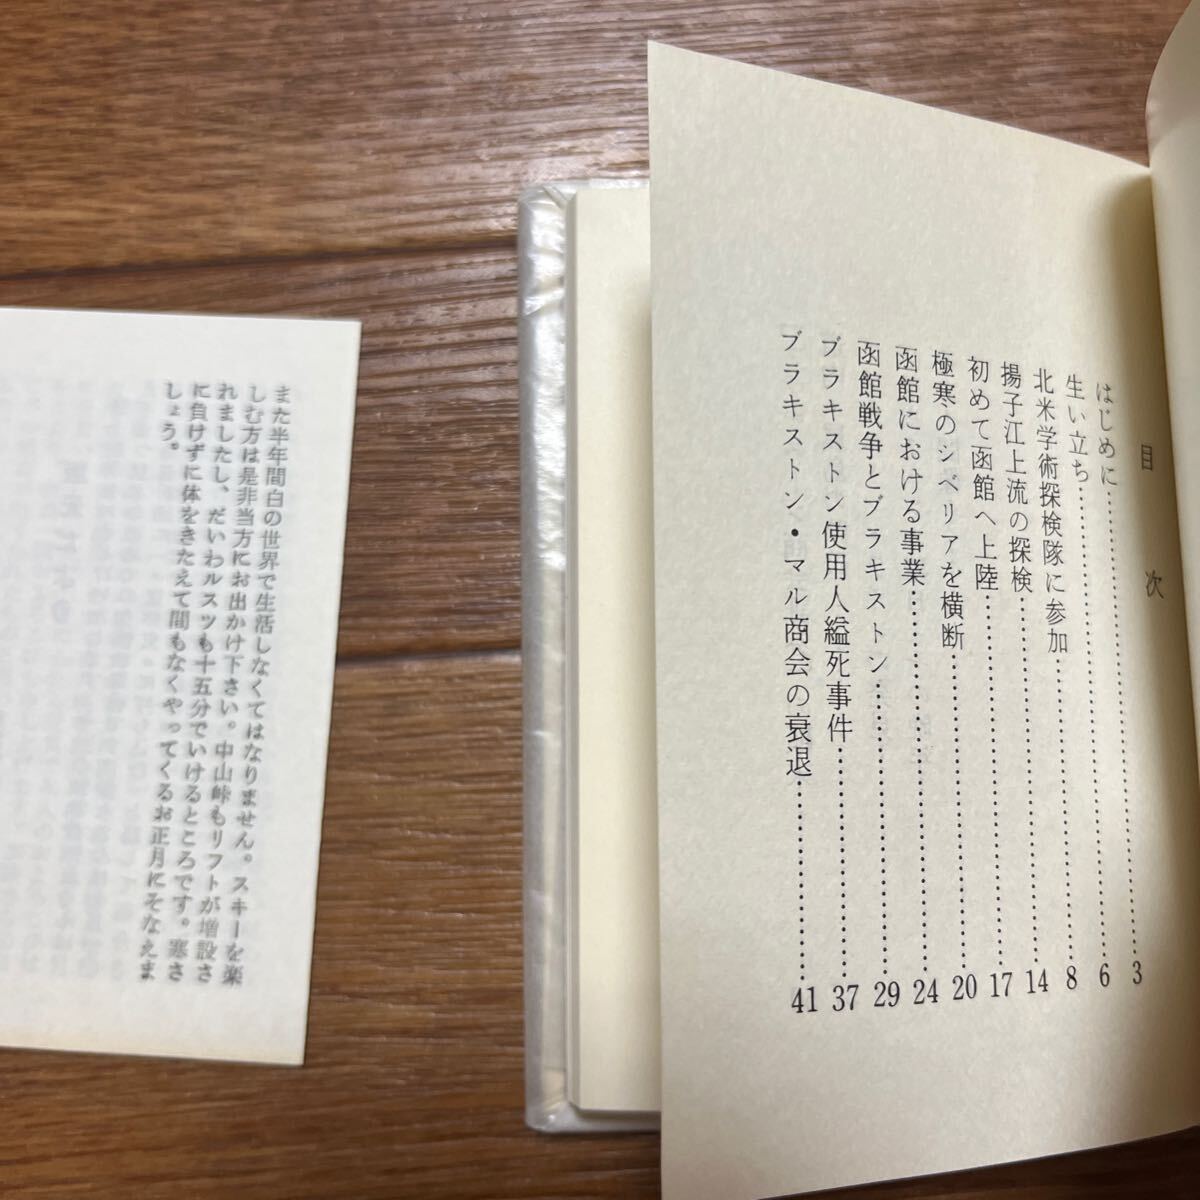 目次
はじめに…………3
生い立ち…………6
北米学術探検隊に参加…………8
揚子江上流の探検…………14
初めて函館へ上陸…………17
極寒のシベリアを横断…………20
函館における事業…………24
函館戦争とブラキストン…………29
ブラキストン使用人縊死事件…………37
ブラキストン・マル商会の衰退…………41
また半年間白の世界で生活しなくてはなりません。スキーを楽
しむ方は是非当方にお出かけ下さい。中山峠もリフトが増設さ
れましたし、だいわルスツも十五分でいけるところです。寒さ
に負けずに体をきたえて間もなくやってくるお正月にそなえま
しょう。